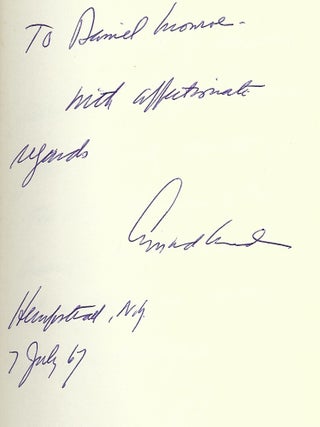 To Daniel Monroe -
with affectionate
regards
Hempstead, N.Y.
7 July 67